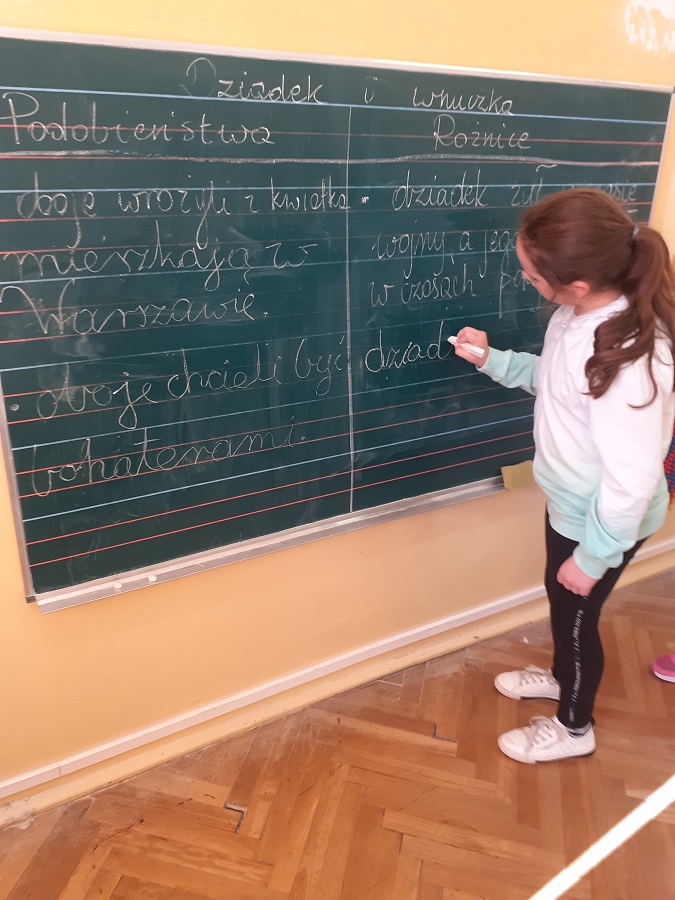 Dziadek i wnuczka
Podobieństwa
Rożnice
doje wrożyli z kwiatka
mieszkają w
Warszawie.
doje chcieli być
bohaterami.
- dziadek żył w
wojny, a
w czasach
dziad